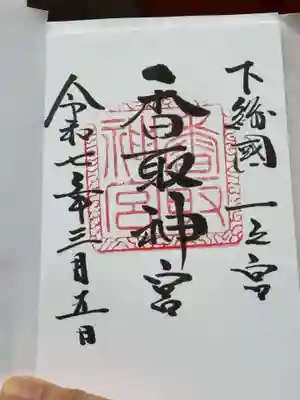 下総國 一之宮
香取神宮
令和七年三月五日
香取神宮